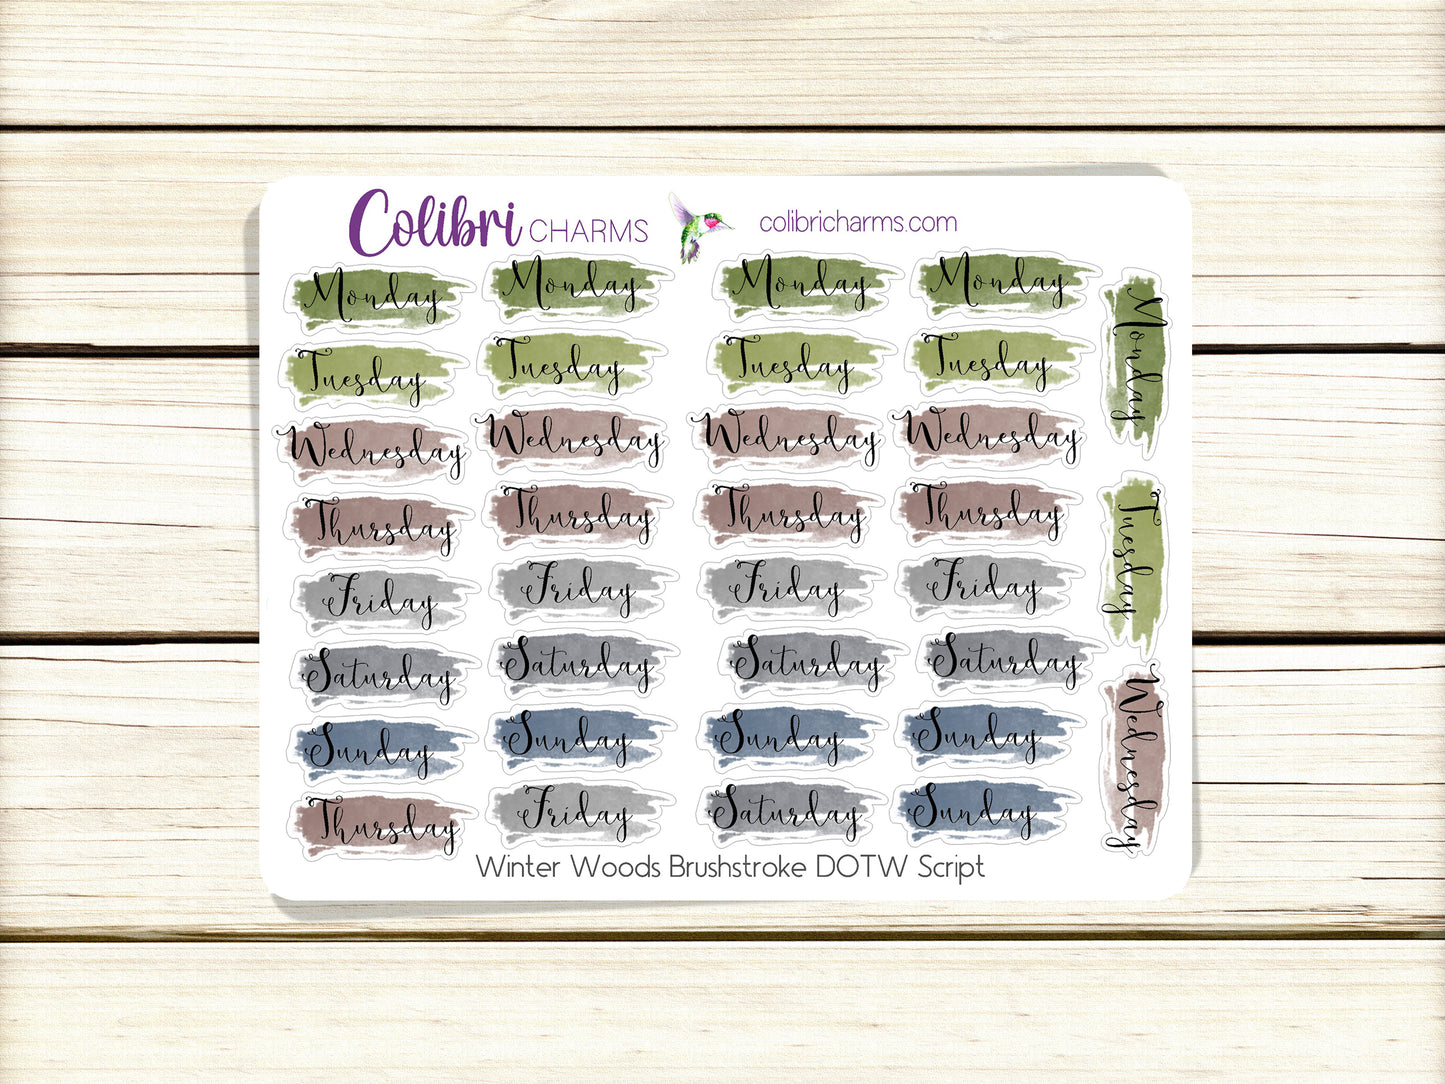 Colibri CHARMS colibricharms.com
Monday Monday Monday Monday
Tuesday Tuesday Tuesday Tuesday
Wednesday Wednesday Wednesday Wednesday
Thursday Thursday Thursday Thursday
Friday Friday Friday Friday
Saturday Saturday Saturday Saturday
Sunday Sunday Sunday Sunday
Thursday Friday Saturday Sunday
Monday
Tuesday
Wednesday
Winter Woods Brushstroke DOTW Script